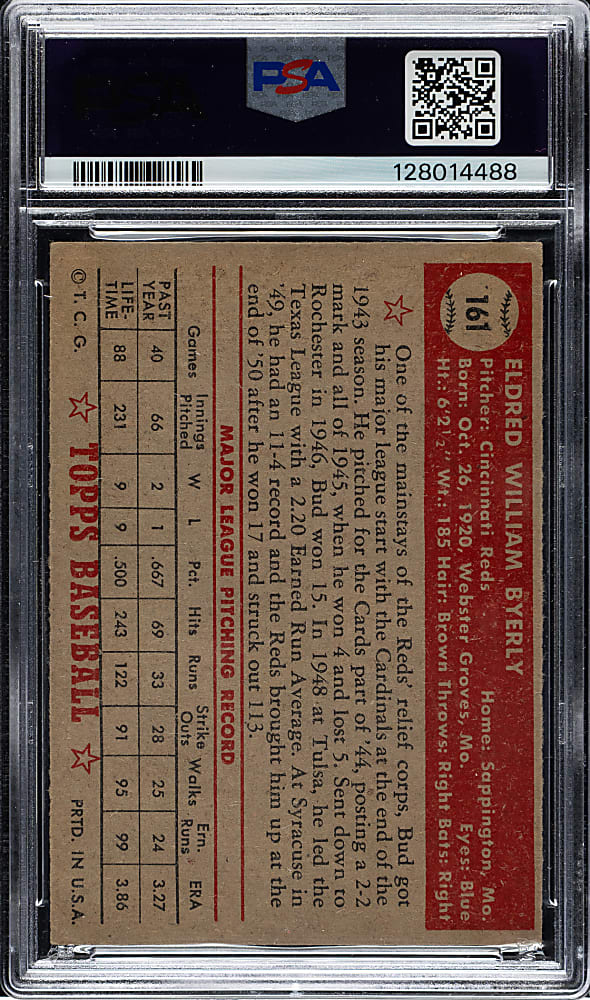 PSA
128014488
161
ELDRED WILLIAM BYERLY
Pitcher: Cincinnati Reds Home: Sappington, Mo.
Born: Oct. 26, 1920, Webster Groves, Mo. Eyes: Blue
Ht.: 6'2½" Wt.: 185 Hair: Brown Throws: Right Bats: Right
One of the mainstays of the Reds' relief corps, Bud got
his major league start with the Cardinals at the end of the
1943 season. He pitched for the Cards part of '44, posting a 2-2
mark and all of 1945, when he won 4 and lost 5. Sent down to
Rochester in 1946, Bud won 15. In 1948 at Tulsa, he led the
Texas League with a 2.20 Earned Run Average. At Syracuse in
'49, he had an 11-4 record and the Reds brought him up at the
end of '50 after he won 17 and struck out 113.
MAJOR LEAGUE PITCHING RECORD
Games Innings Pitched W L Pct. Hits Runs Strike Outs Walks Ern. Runs ERA
PAST YEAR 40 66 2 1 .667 69 33 28 25 24 3.27
LIFE-TIME 88 231 9 9 .500 243 122 91 95 99 3.86
© T. C. G. TOPPS BASEBALL PRTD. IN U.S.A.